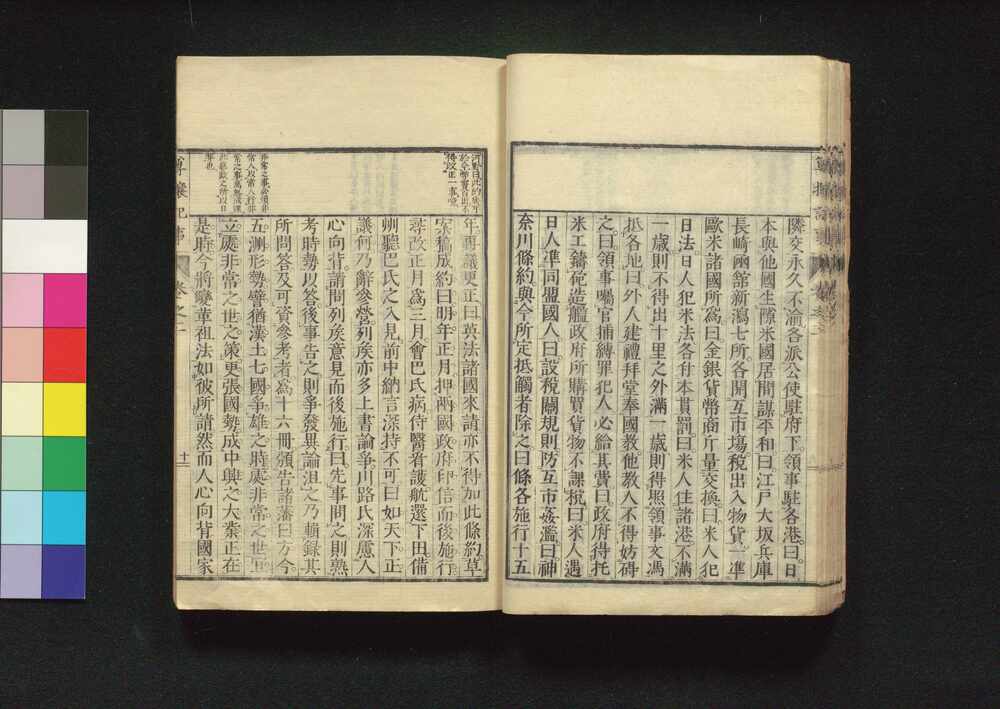 隣交永久不渝各派公使駐府下領事駐各港曰日
本與他國生隙米國居間謀平和曰江戸大坂兵庫
長崎凾館新瀉七所各開互市場稅出入物貨一準
歐米諸國所爲曰金銀貨幣商斤量交換曰米人犯
日法日人犯米法各付本貫罰曰米人住諸港不滿
一歲則不得出十里之外滿一歲則得照領事文馮
抵各地曰外人建禮拜堂奉國教他教人不得妨碍
之曰領事囑官捕縛罪犯人必給其費曰政府得托
米工鑄砲造艦政府所購買貨物不課稅曰米人遇
日人準同盟國人曰設稅關規則防互市姦濫曰神
奈川條約與今所定抵觸者除之曰條各施行十五
年再議更正曰英法諸國來請亦不得加此條約草
案稿成約曰明年正月押兩國政府印信而後施行
尋改正月爲三月會巴氏病侍醫看護航還下田備
州聽巴氏之入見前中納言深持不可曰如天下正
議何乃辭參營列矦亦多上書論爭川路氏深慮人
心向背請問列矦意見而後施行曰先事問之則熟
考時勢以答後事告之則爭發異論沮之乃輯錄其
所問答及可資參考者爲十六冊頒告諸藩曰方今
五洲形勢譬猶漢土七國爭雄之時處非常之世
立處非常之世之策更張國勢成中興之大業正在
是時今將變革祖法如彼所請然而人心向背國家
非常之事必須非
常人以常人行非
尊攘紀事
卷之一
十一